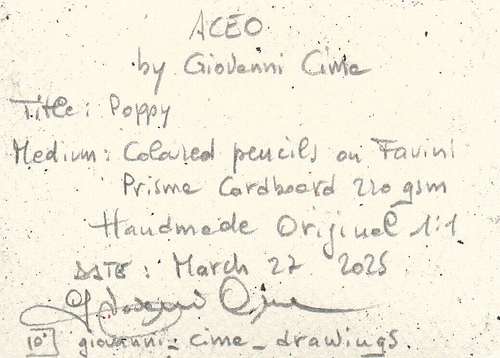 ACEO
by Giovanni Cime
Title: Poppy
Medium: Colored pencils on Favini
Prisme Cardboard 220 gsm
Handmade Original 1:1
DATE: March 27 2025
Giovanni Cime
giovanni_cime_drawings.